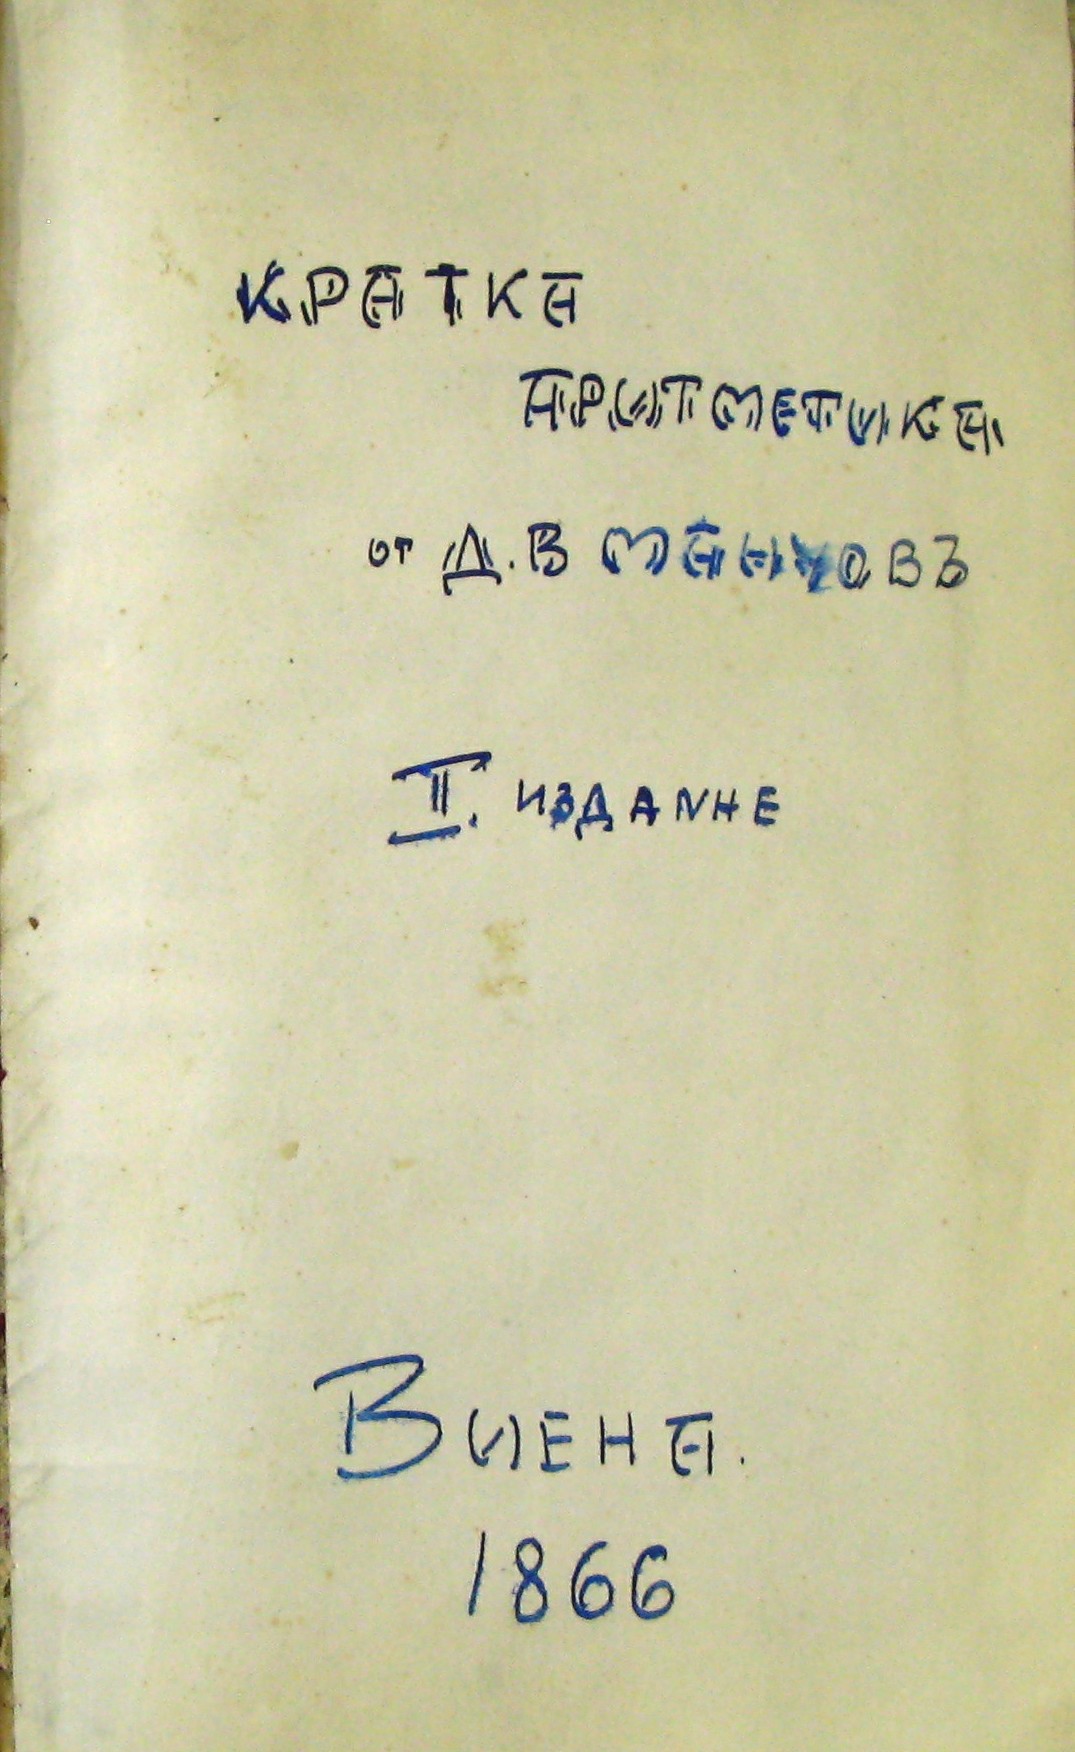 КРАТКА
АРИТМЕТИКА
от Д.В МАНЧОВЪ
II. ИЗДАНИЕ
ВИЕНА.
1866